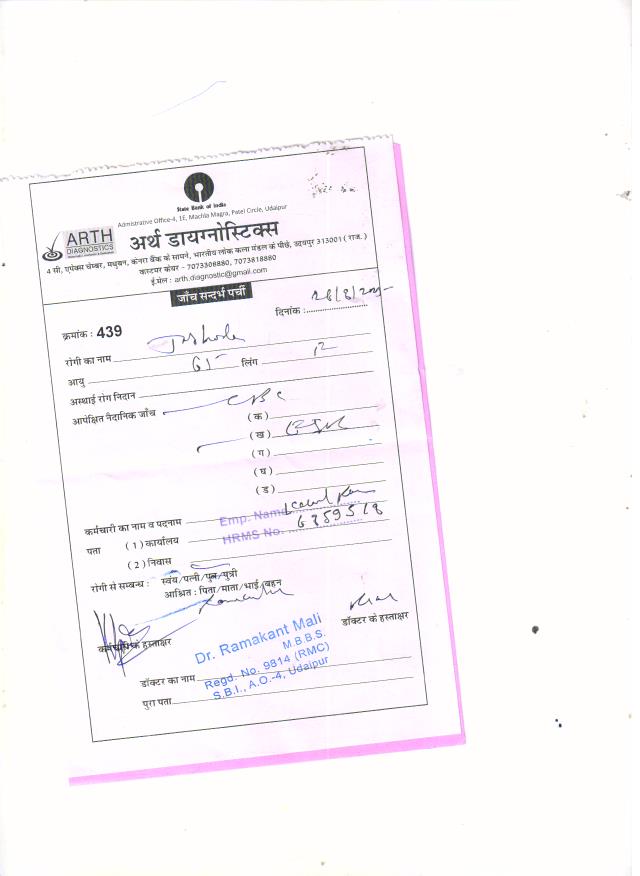 State Bank of India
Admistrative Office-4, 1E, Machla Magra, Patel Circle, Udaipur
ARTH
DIAGNOSTICS
अर्थ डायग्नोस्टिक्स
4 सी, एपेक्स चेम्बर, मधुबन, केनरा बैंक के सामने, भारतीय लोक कला मंडल के पीछे, उदयपुर 313001 ( राज. )
कस्टमर केयर - 7073308880, 7073818880
ई.मेल : arth.diagnostic@gmail.com
जाँच सन्दर्भ पर्ची
दिनांक :
क्रमांक : 439
रोगी का नाम
आयु 65 लिंग
अस्थाई रोग निदान
आपेक्षित नैदानिक जाँच (क) CBC
(ख)
(ग)
(घ)
(ड)
कर्मचारी का नाम व पदनाम Emp. Name
पता (1) कार्यालय HRMS No. 6359518
(2) निवास
रोगी से सम्बन्ध : स्वंय/पत्नी/पुत्र/पुत्री
आश्रित : पिता/माता/भाई/बहन
कर्मचारी के हस्ताक्षर डॉक्टर के हस्ताक्षर
Dr. Ramakant Mali
M.B.B.S.
डॉक्टर का नाम Regd. No. 9814 (RMC)
पुरा पता S.B.I., A.O.-4, Udaipur